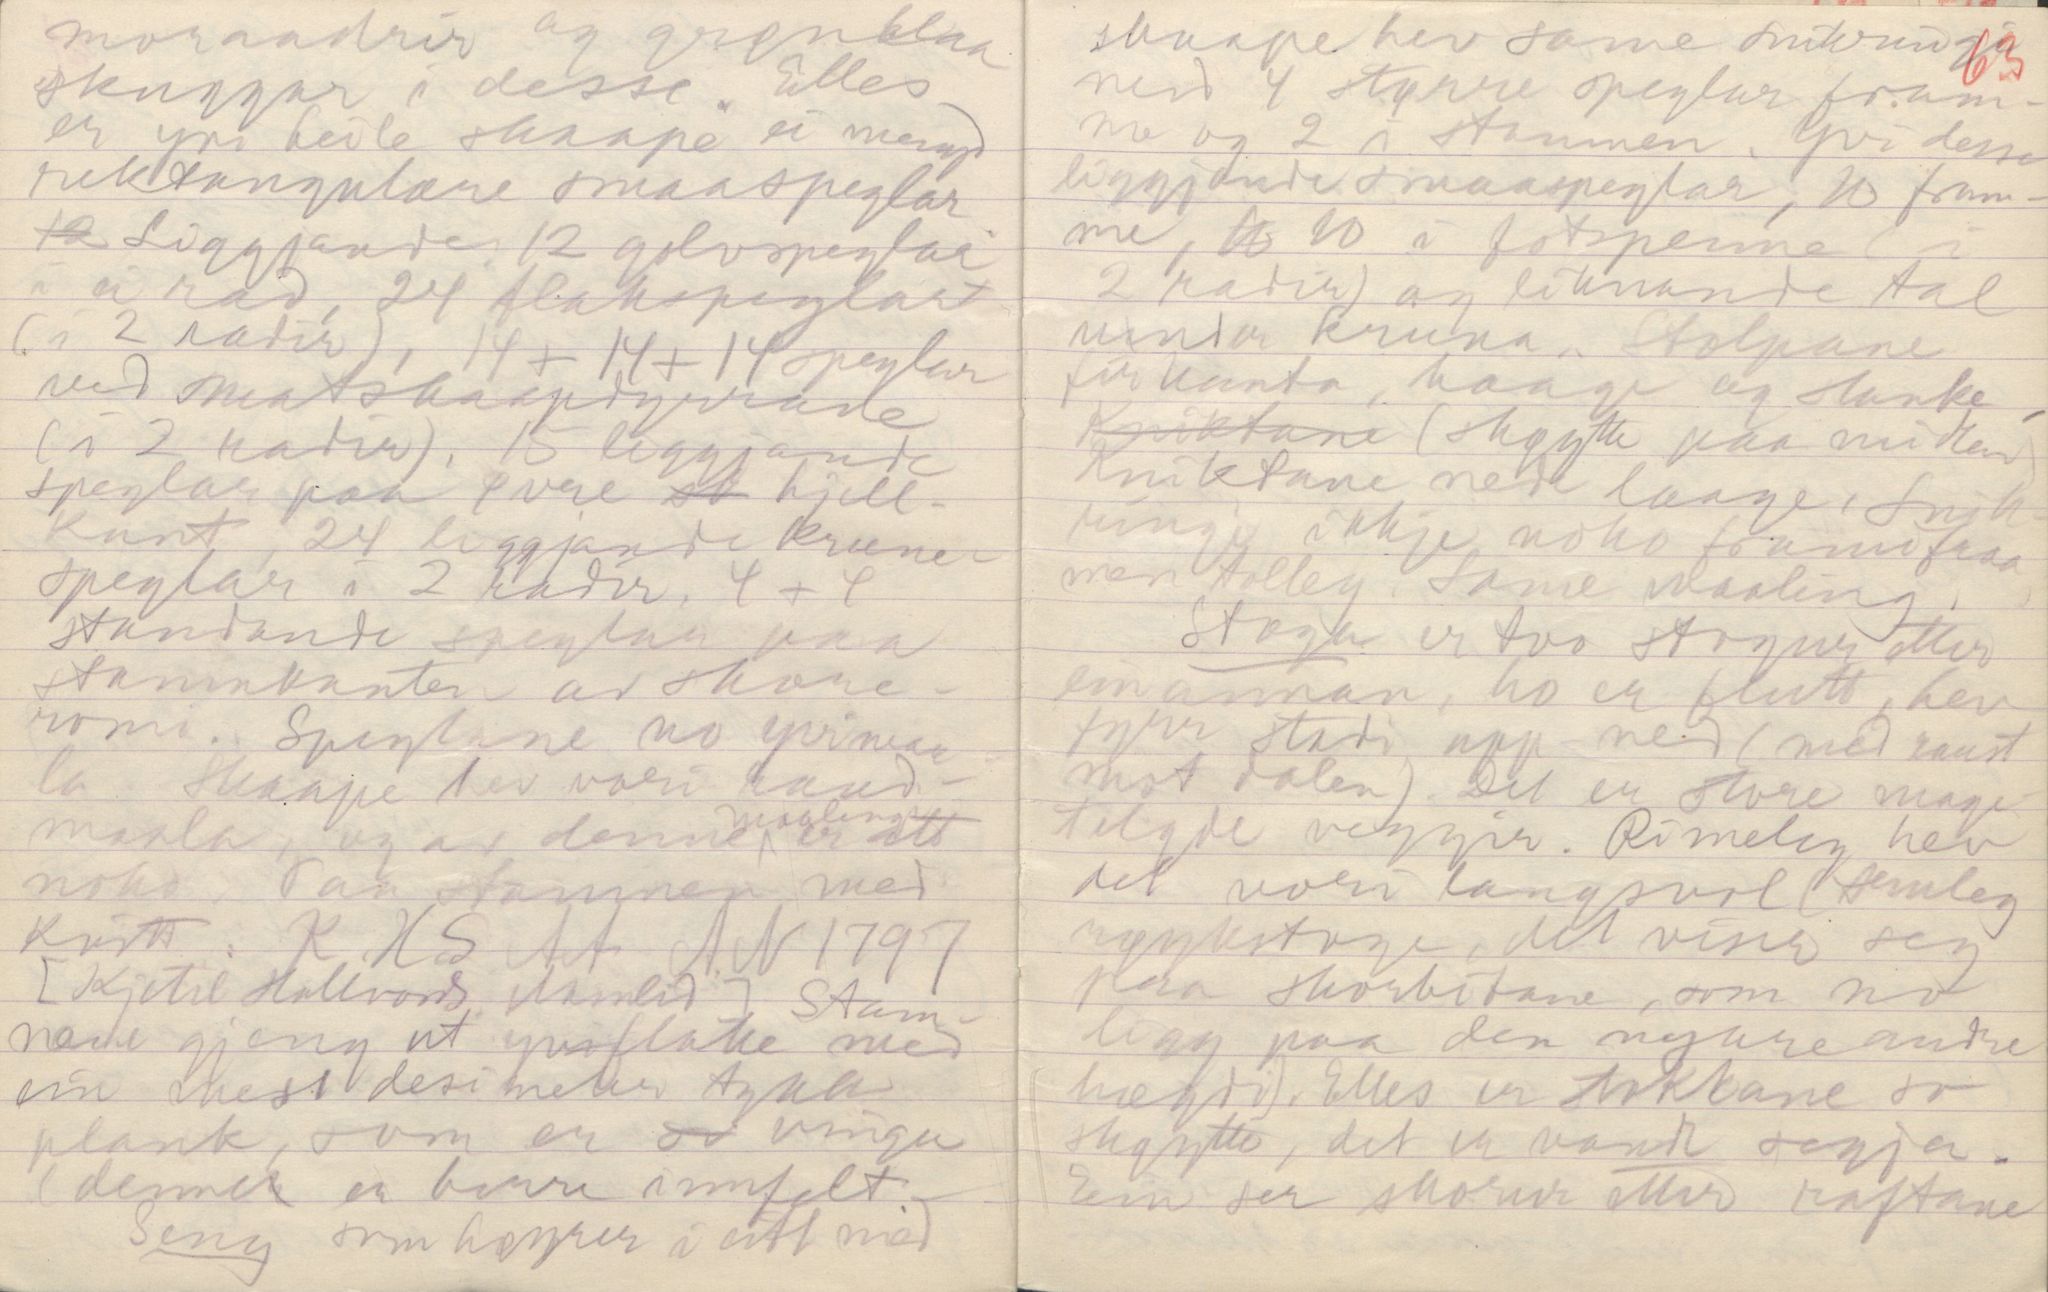 moraadrir og grønblaa
skuggar i desse. Elles
er yvi heile skaape ei mengd
rektangulære smaaspeglar
Liggjande 12 golvspeglar
i ei rad, 24 flakspeglar
(i 2 radir), 14 + 14 + 14 speglar
ved matskaapdyrrane
(i 2 radir), 15 liggjande
speglar paa øvre hjell-
kant, 24 liggjande krune
speglar i 2 radir, 4 + 4
standande speglar paa
stammkanten av skore-
romi. Speglane no yvimaa
la. Skaape hev vori raud-
maala, og av denne maalingi er att
noko. Paa stammen med
kvitt: K H S 1797
[Kjetil Hallvords ] Stam-
nane gjeng ut yvi flake med
ein mest desimeter tykk
plank, som er vinga
(denne er berre innfelt
Seng som høyrer i eitt med
skaape hev same snikringi
63
med 4 større speglar fram-
me og 2 i stammen. Yvi desse
liggjande smaaspeglar, 10 fram-
me, 10 i fotspenne (i
2 radir) og liknande tal
under kruna. Stolpane
firkanta, haage og slanke,
Kniktane (skøytte paa midten)
Kniktane nede laage. Snik-
ringi ikkje noko framifraa
men tolleg. Same maaling.
Stoga er tvo stogur etter
einannan, ho er flutt, hev
fyrr stadi opp-ned (med raust
mot dalen). Det er store mage
telgde veggjir. Rimeleg hev
det vori langsvol (
røykstoge, det viser seg
paa skorbitane, som no
ligg paa den nyare andre
høgdi). Elles er stokkane so
skøytte, det er vandt segja.
Ein ser skorur etter raftane